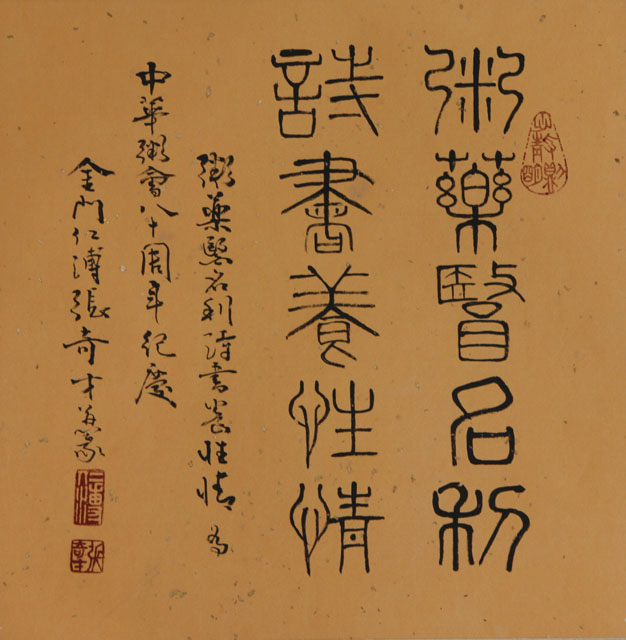 粥藥醫名利
詩書養性情
粥藥醫名利詩書養性情為
中華粥會八十周年紀慶
金門仁溥張奇才并篆